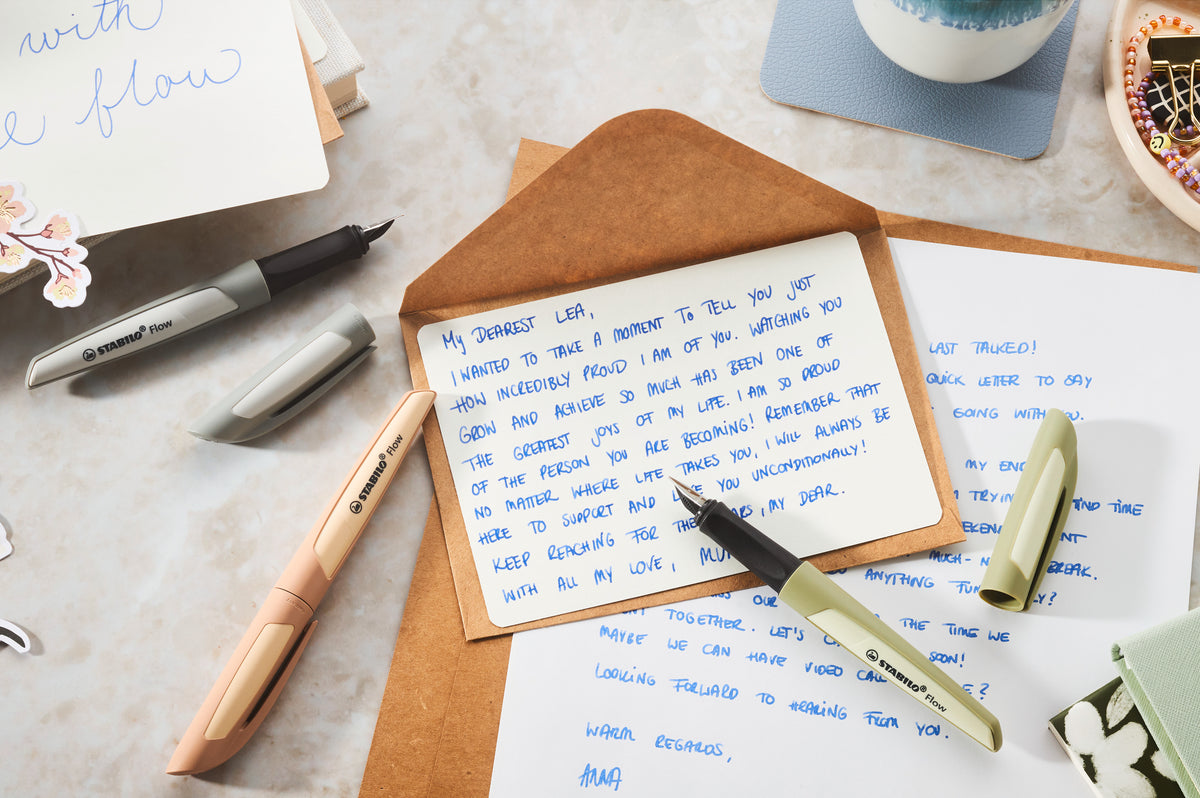 with
e flow
STABILO® Flow
STABILO® Flow
My DEAREST LEA,
I WANTED TO TAKE A MOMENT TO TELL YOU JUST
HOW INCREDIBLY PROUD I AM OF YOU. WATCHING YOU
GROW AND ACHIEVE SO MUCH HAS BEEN ONE OF
THE GREATEST JOYS OF MY LIFE. I AM SO PROUD
OF THE PERSON YOU ARE BECOMING! REMEMBER THAT
NO MATTER WHERE LIFE TAKES YOU, I WILL ALWAYS BE
HERE TO SUPPORT AND YOU UNCONDITIONALLY!
KEEP REACHING FOR , MY DEAR.
WITH ALL MY LOVE,
LAST TALKED!
QUICK LETTER TO SAY
GOING WITH
MY
TIME
MUCH- BREAK.
ANYTHING
OUR
TOGETHER. LET'S THE TIME WE
MAYBE WE CAN HAVE VIDEO SOON!
LOOKING FORWARD TO HEARING FROM YOU.
WARM REGARDS,
ANNA
STABILO® Flow